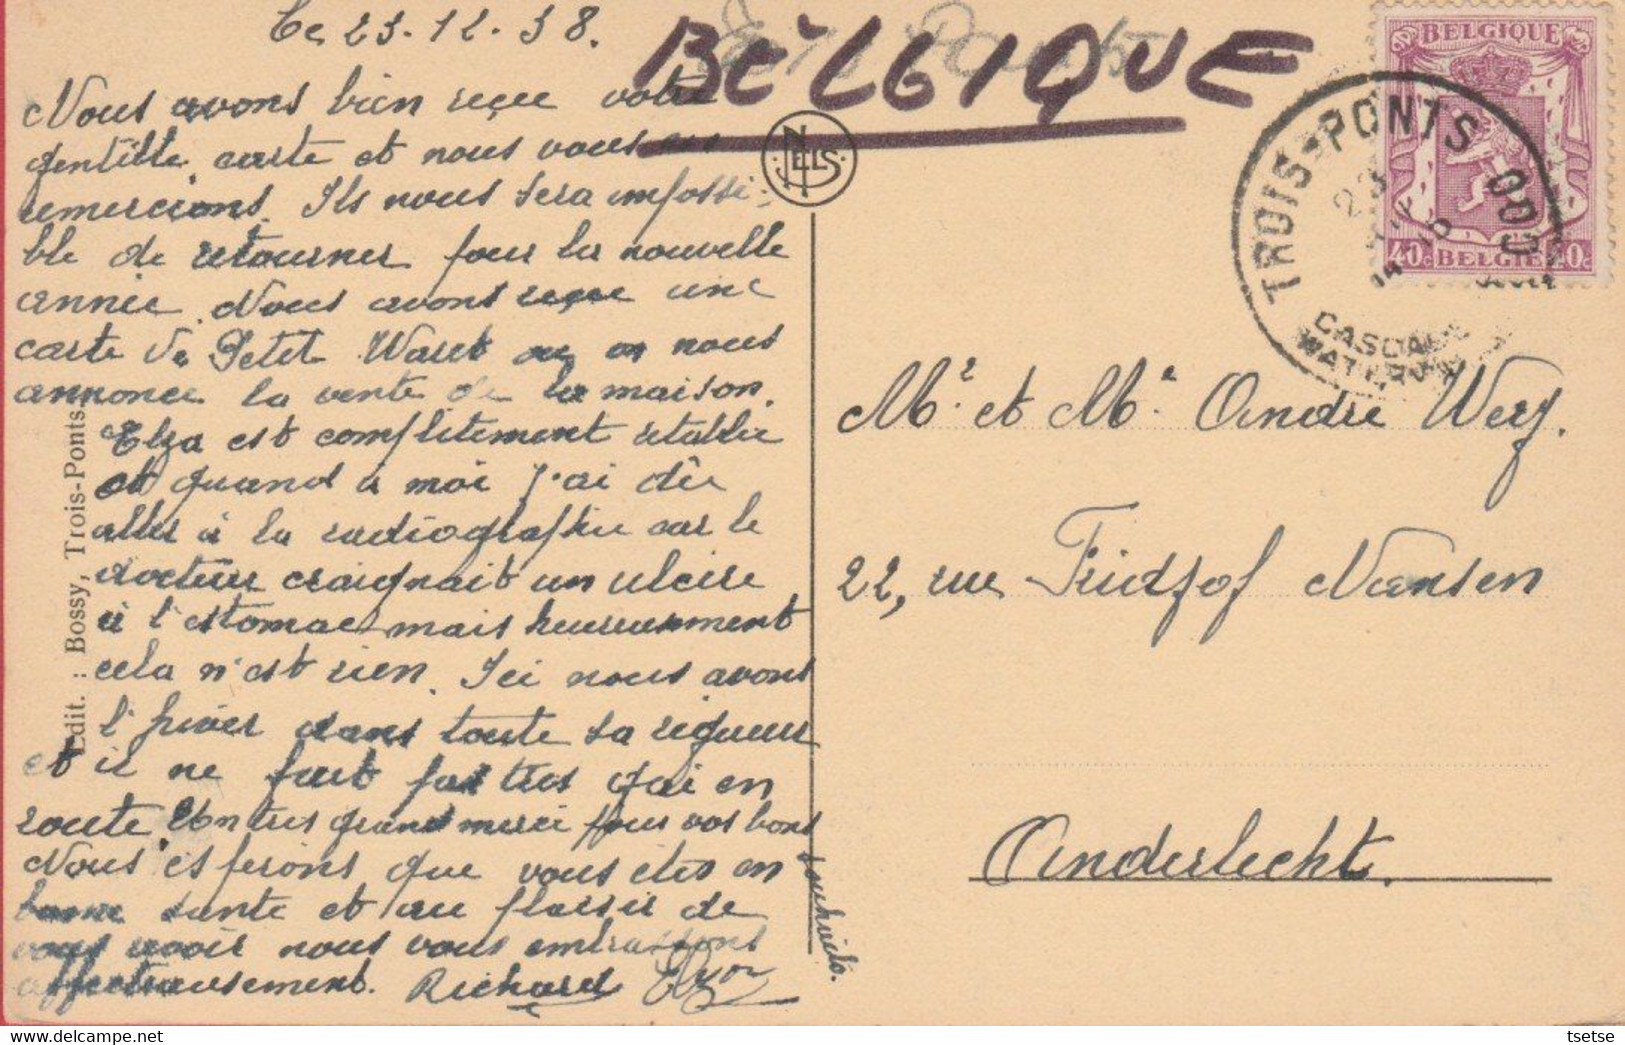 Le 23.12.38.
Nous avons bien reçu votre
gentille carte et nous vous en
remercions. Ils nous sera impossi-
ble de retourner pour la nouvelle
année. Nous avons reçue une
carte de Petit Waret ou on nous
annonce la vente de la maison.
Elza est complètement rétablie
et quand à moi j'ai dû
aller à la radiographie car le
docteur craignait un ulcère
à l'estomac mais heureusement
cela n'est rien. Ici nous avons
l'hiver dans toute sa rigueur
et il ne fait pas très gai en
route. Un très grand merci pour vos bons
souhaits.
Nous espérons que vous êtes en
bonne santé et au plaisir de
vous revoir nous vous embrassons
affectueusement. Richard Elza
Edit. : Bossy, Trois-Ponts
BELGIQUE
NELS
BELGIQUE
40c BELGIË 40c
TROIS-PONTS
CASCADE
Mr. et Me. André Wery.
22, rue Fridtjof Nansen
Anderlecht.
tsetse